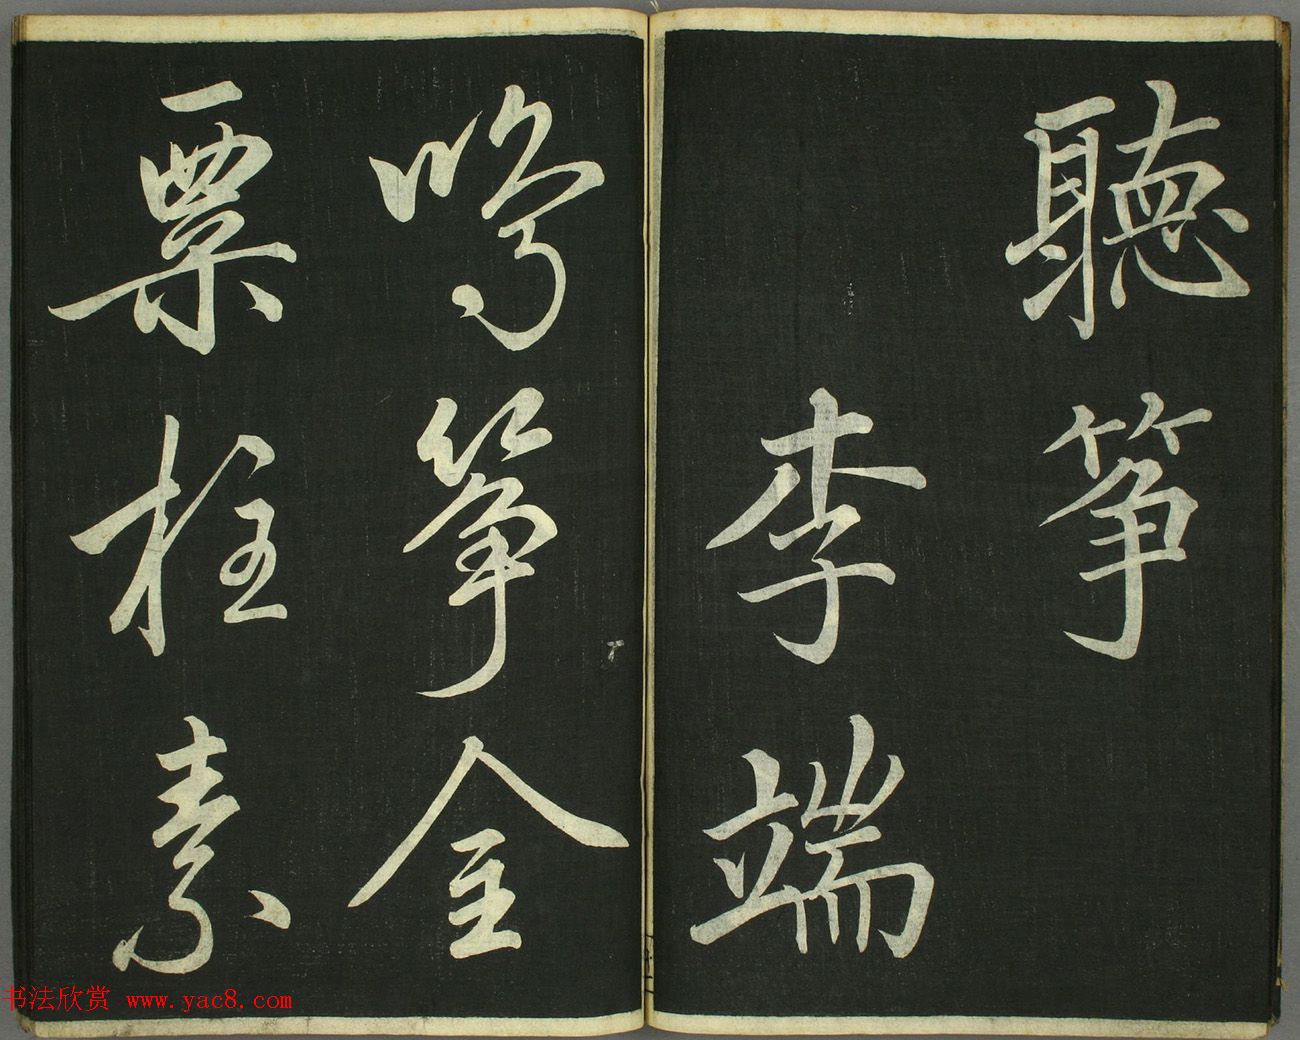 聽筝
李端
鳴筝金
粟柱素
书法欣赏 www.yac8.com